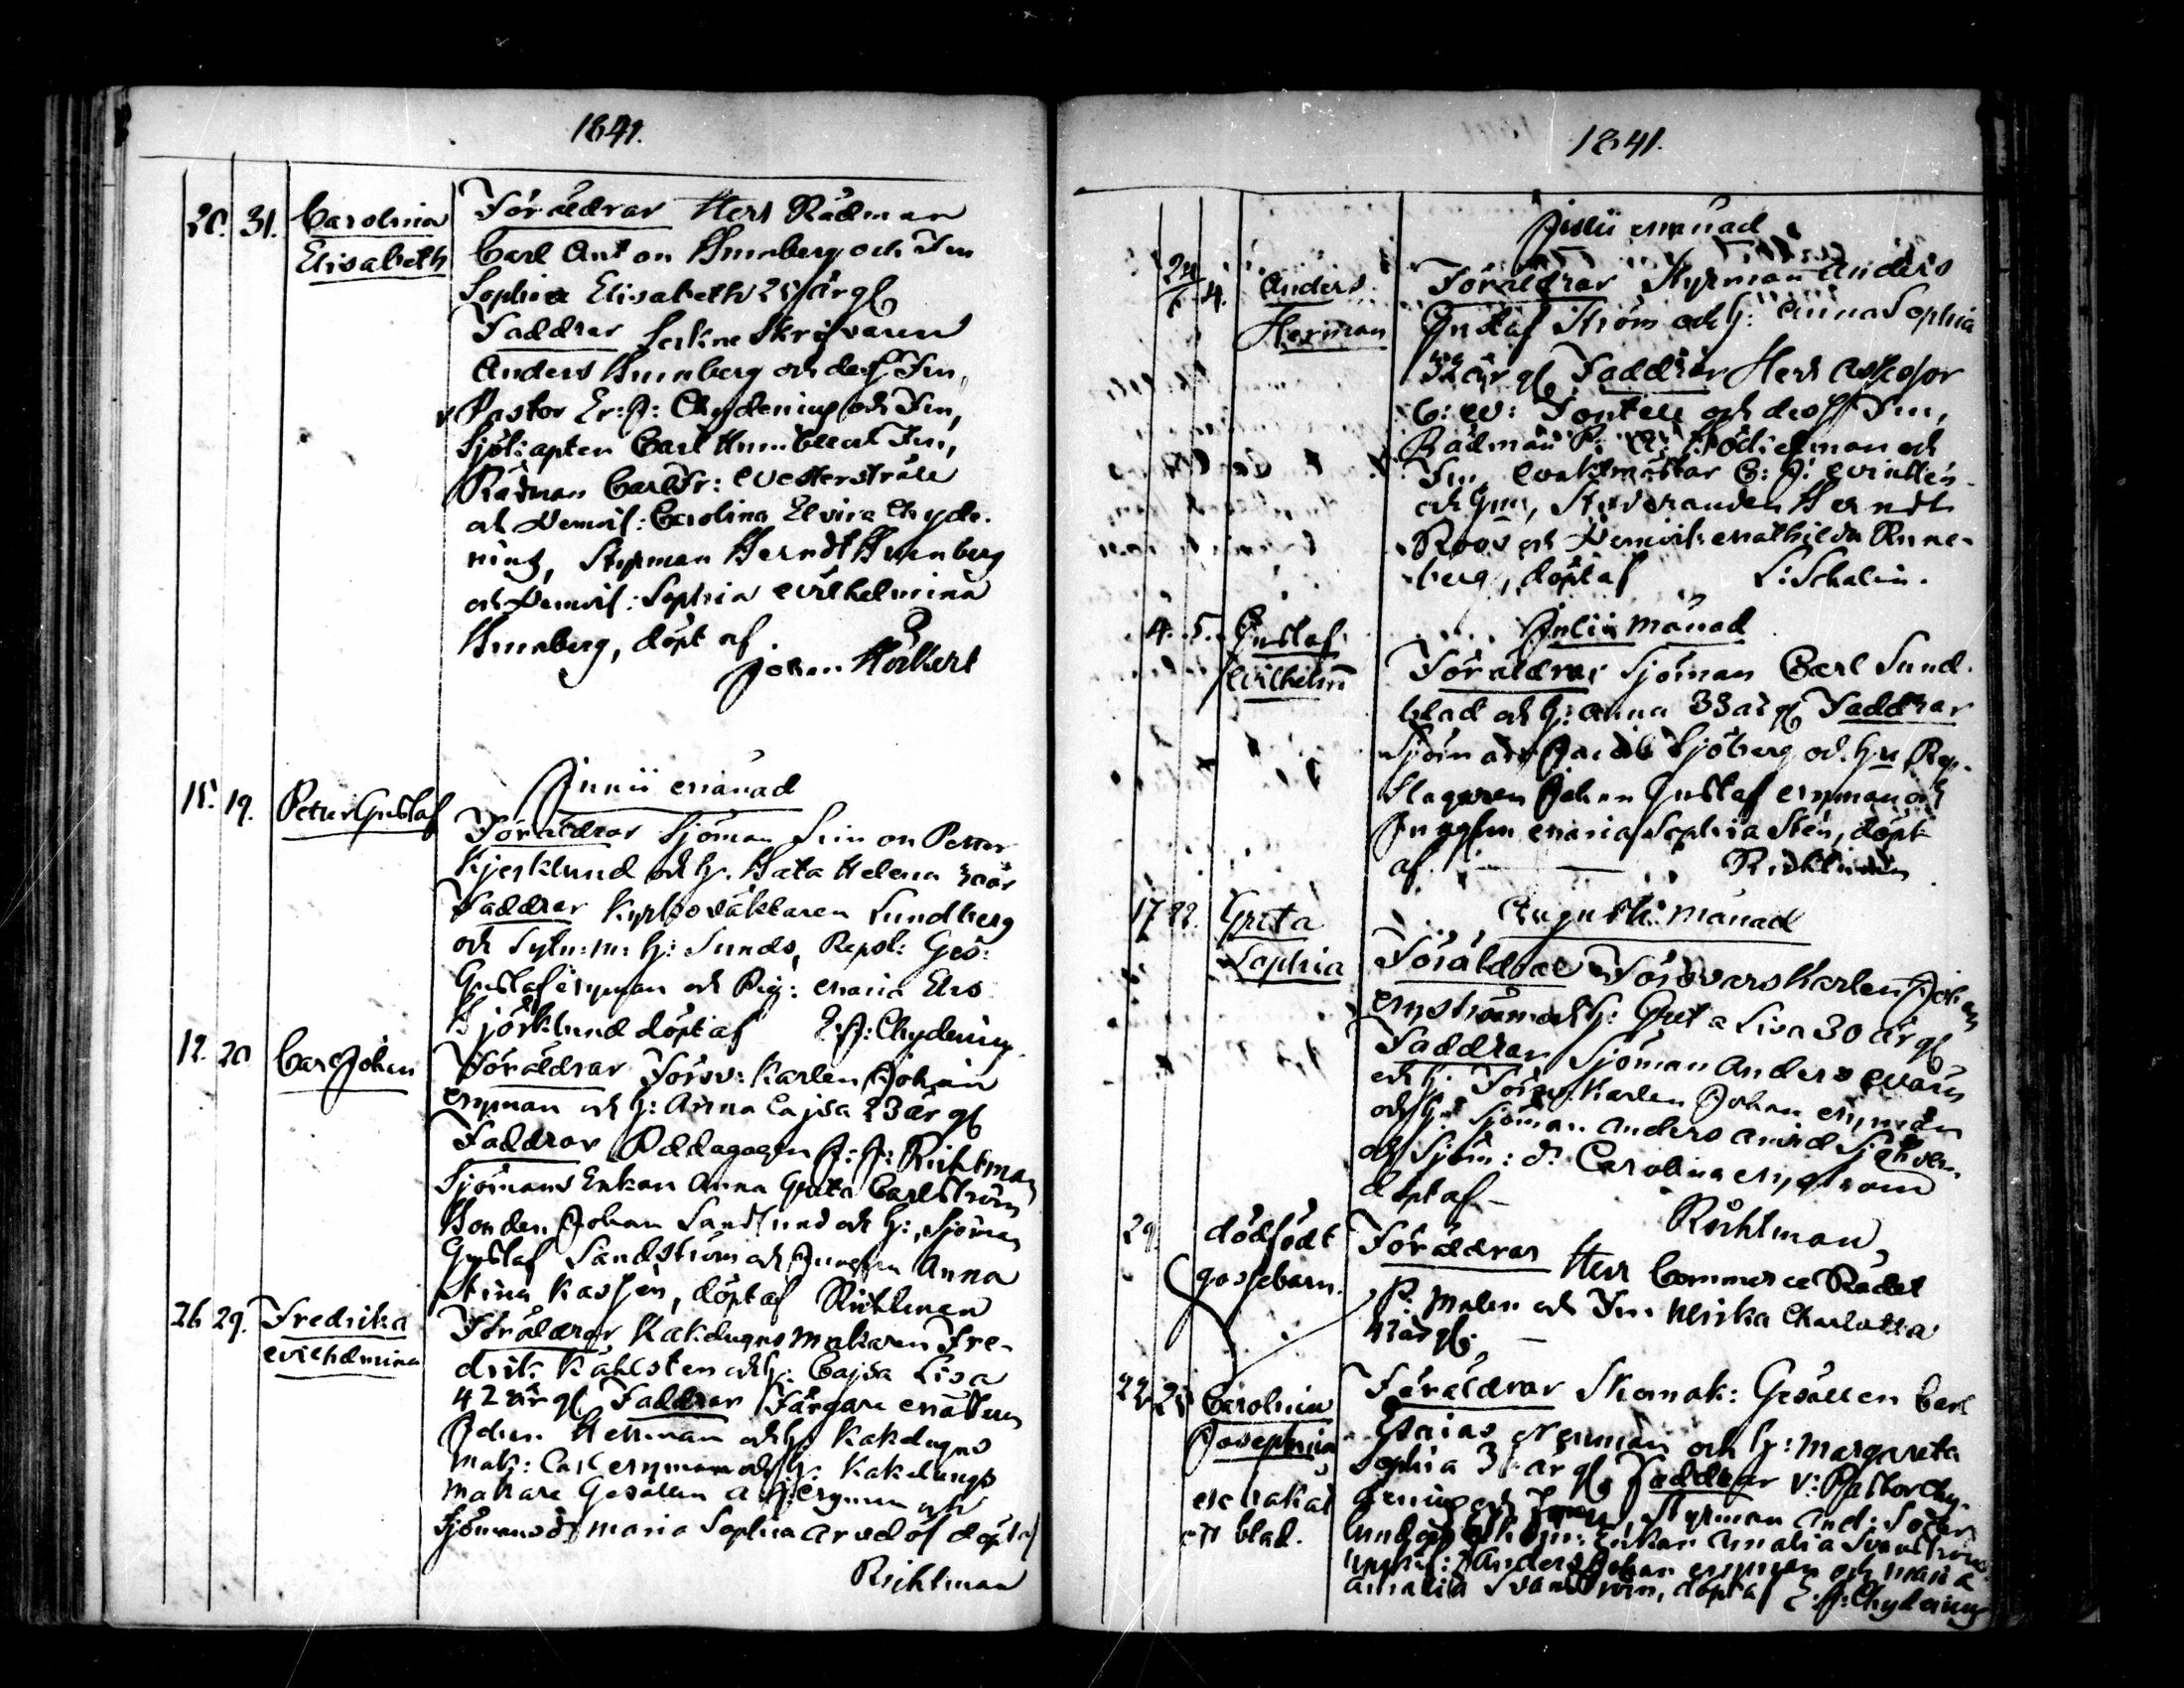 1841.
20. 31. Carolina Föräldrar Herr Rådman
Elisabeth Carl Anton Brunberg och Fru
Sophia Elisabeth 25 år gl
Faddrar Skrifvaren
Anders Brunberg och dess Fru,
v Pastor Er: J: Chydenius och Fru,
Sjökapten Carl Fru,
Rådman Carl Fr: Westerstråle
och Demois: Carolina Elvira Chyde-
nius, Styrman Berndt Brunberg
och Demois: Sophia Wilhelmina
Brunberg, döpt af
Johan
Junii Månad
15. 19. Petter Gustaf Föräldrar Sjöman Simon Petter
Björklund och h. Beata Helena 30 år
Faddrar Kyrkoväktaren Lundberg
och h: Sunds, Repsl: Ges:
Gustaf Nyman och Pig: Maria Els
Björklund döpt af E: J: Chydenius.
12. 20 Carl Johan Föräldrar Försv: Karlen Johan
Nyman och h: Anna Cajsa 23 år gl
Faddrar Pædagogen J: J: Richtman
Sjömans Enkan Anna Greta Carlström
Bonden Johan Sandlund och h:, Sjöman
Gustaf Sandström och Jungfru Anna
Stina döpt af Richtman
26 29. Fredrika Föräldrar Kakelugns makaren Fre-
Wilhelmina drik Kahlsten och h: Cajsa Lisa
42 år gl Faddrar Färgare Mästaren
Johan Hellman och h: Kakelugns
mak: Carl Nyman och h: Kakelungs
makare Gesällen A Nyman och
Sjömans d: Maria Sophia Arvelöf döpt af
Richtman
1841.
Junii Månad
24/6 4. Anders Föräldrar Styrman Anders
Herman Gustaf Ström och h: Anna Sophia
32 år gl Faddrar Herr Assessor
C: W: Fontell och dess Fru,
Rådman Söderman och
Fru, C: J:
och Fru, Studeranden Berndt
Roos och Demois: Mathilda Rune-
berg, döpt af L: Schalin.
Julii Månad
4. 5. Gustaf Föräldrar Sjöman Carl Sund-
Wilhelm blad och h: Anna 33 år gl Faddrar
Sjöman Jacob Sjöberg och hu Rep-
slagaren Johan Gustaf Nyman och
Jungfru Maria Sophia Sten, döpt
af Richtman
Augusti Månad
17 22. Greta Föräldrar Försvars Karlen Johan
Sophia Nyström och h: Greta Lisa 30 år gl
Faddrar Sjöman Anders
och h: Försv Karlen Johan Nyman
och h: Sjöman Anders
och Sjöm: d: Carolina Nyström
döpt af
Richtman
29. dödfödt Föräldrar Herr Commerce Rådet
gossebarn. P: Malm och Fru Ulrika Charlotta
år gl.
22. 25 Carolina Föräldrar Skomak: Gesällen Carl
Josephina Esaias Nyman och h: Margareta
Sophia år gl. Faddrar v: Pastor Chy-
denius och Fru, Styrman And: Söder-
ett blad. lund och Enkan Amalia Svanström
Anders Johan Nyman och Maria
Amalia Svanström, döpt af E: J: Chydenius